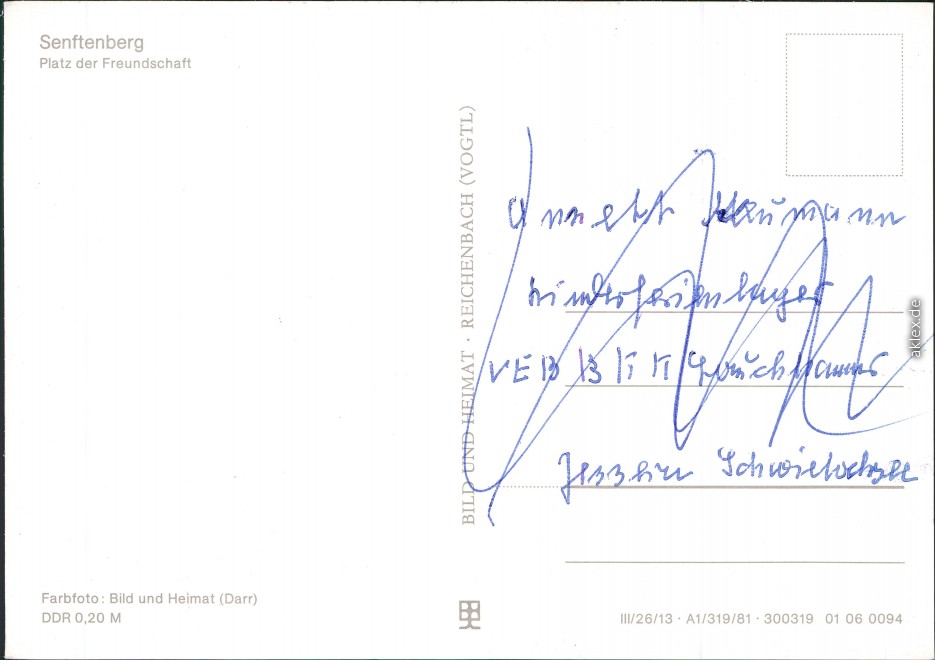 Senftenberg
Platz der Freundschaft
BILD UND HEIMAT · REICHENBACH (VOGTL)
Annett
Kinderferienlager
VEB BKK Lauchhammer
Jessern Schwielochsee
Farbfoto: Bild und Heimat (Darr)
DDR 0,20 M
III/26/13 · A1/319/81 · 300319 01 06 0094
aklex.de